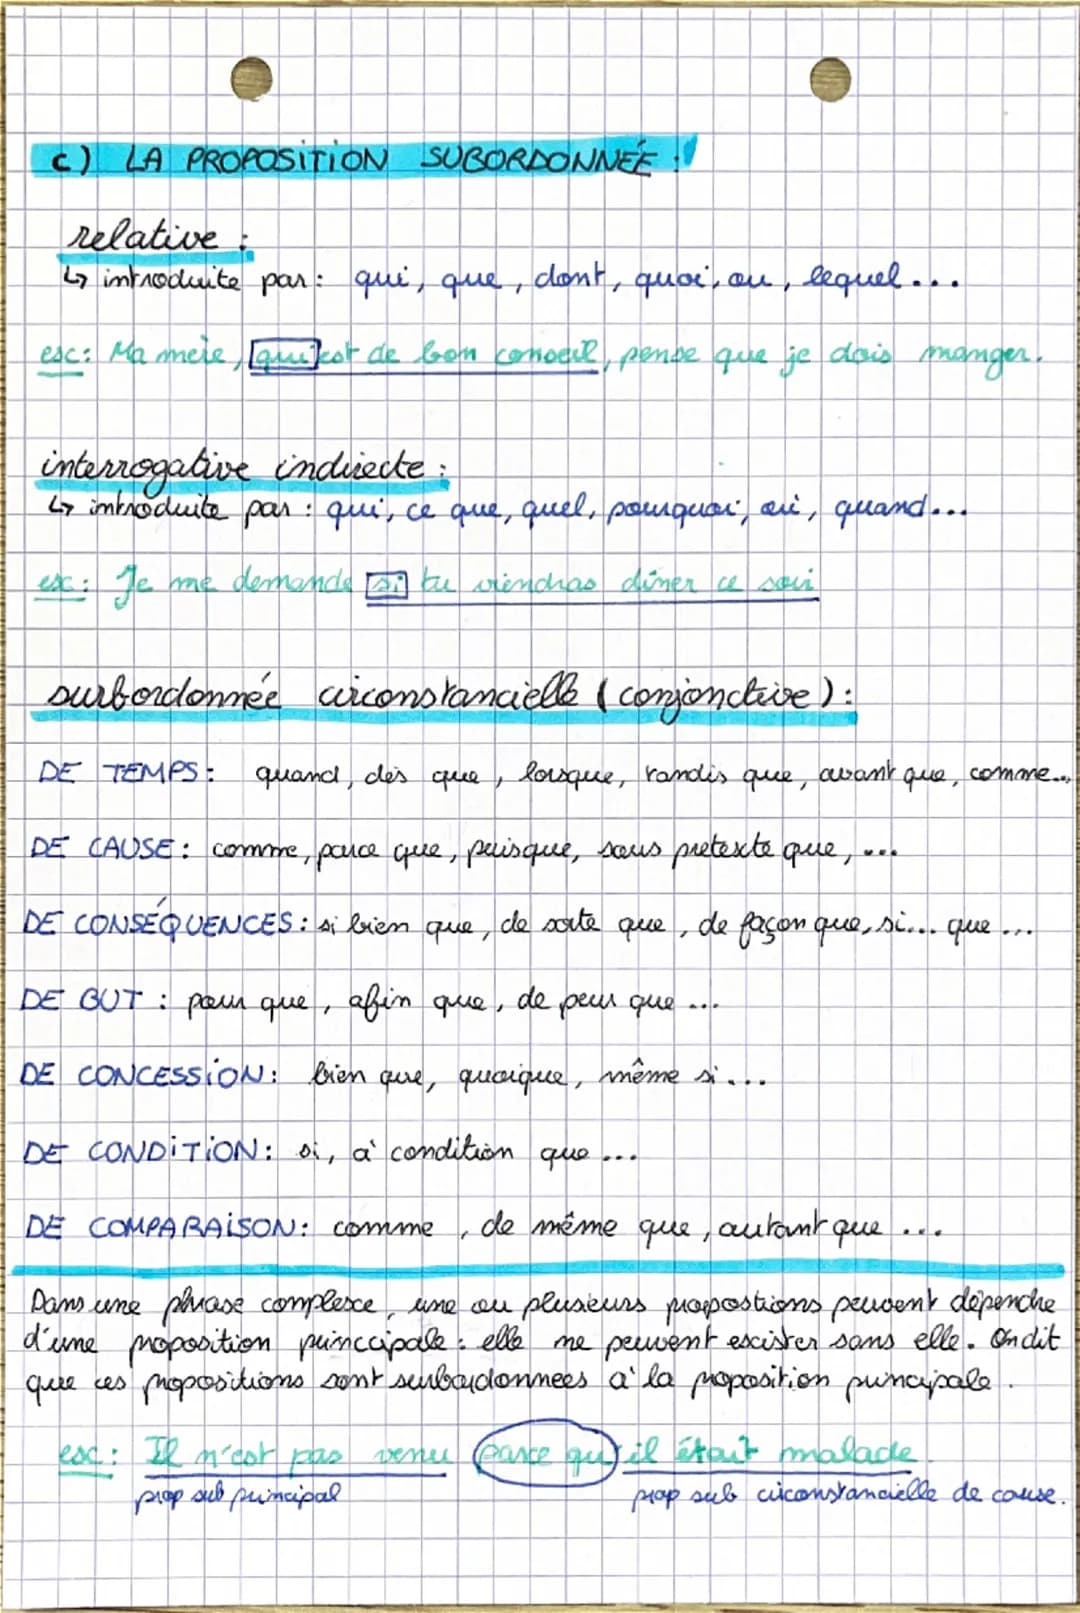 c) LA PROPOSITION SUBORDONNÉE :
relative :
↳ introduite par : qui, que, dont, quoi, ou, lequel ...
ex : Ma mère, qui est de bon conseil, pense que je dois manger.
interrogative indirecte :
↳ introduite par : qui, ce que, quel, pourquoi, où, quand...
ex : Je me demande si tu viendras dîner ce soir
surbordonnée circonstancielle (conjonctive) :
DE TEMPS : quand, dès que, lorsque, tandis que, avant que, comme...
DE CAUSE : comme, parce que, puisque, sous pretexte que, ...
DE CONSÉQUENCES : si bien que, de sorte que, de façon que, si... que ...
DE BUT : pour que, afin que, de peur que ...
DE CONCESSION : bien que, quoique, même si ...
DE CONDITION : si, à condition que ...
DE COMPARAISON : comme, de même que, autant que ...
Dans une phrase complexe, une ou plusieurs propostions peuvent dépendre
d'une proposition princcipale : elle ne peuvent exister sans elle. On dit
que ces propositions sont surbordonnees à la proposition principale.
ex : Il n'est pas venu parce qu'il était malade.
prop sub principal prop sub circonstancielle de cause.